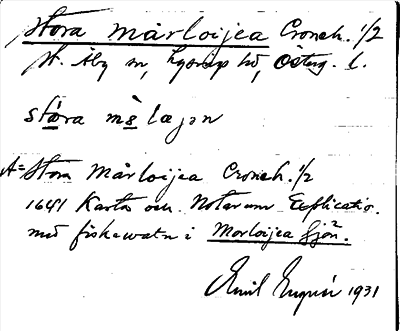 Stora Mårloijea Croneh. 1/2
St. Åby sn, Lysings hd, Österg. l.
stǿra mǻlajǝn
A= Stora Mårloijea Croneh. 1/2
1641 Karta och Notarum Explicatio.
med fiskewatn i Morloijea Sjön².
Emil 1931